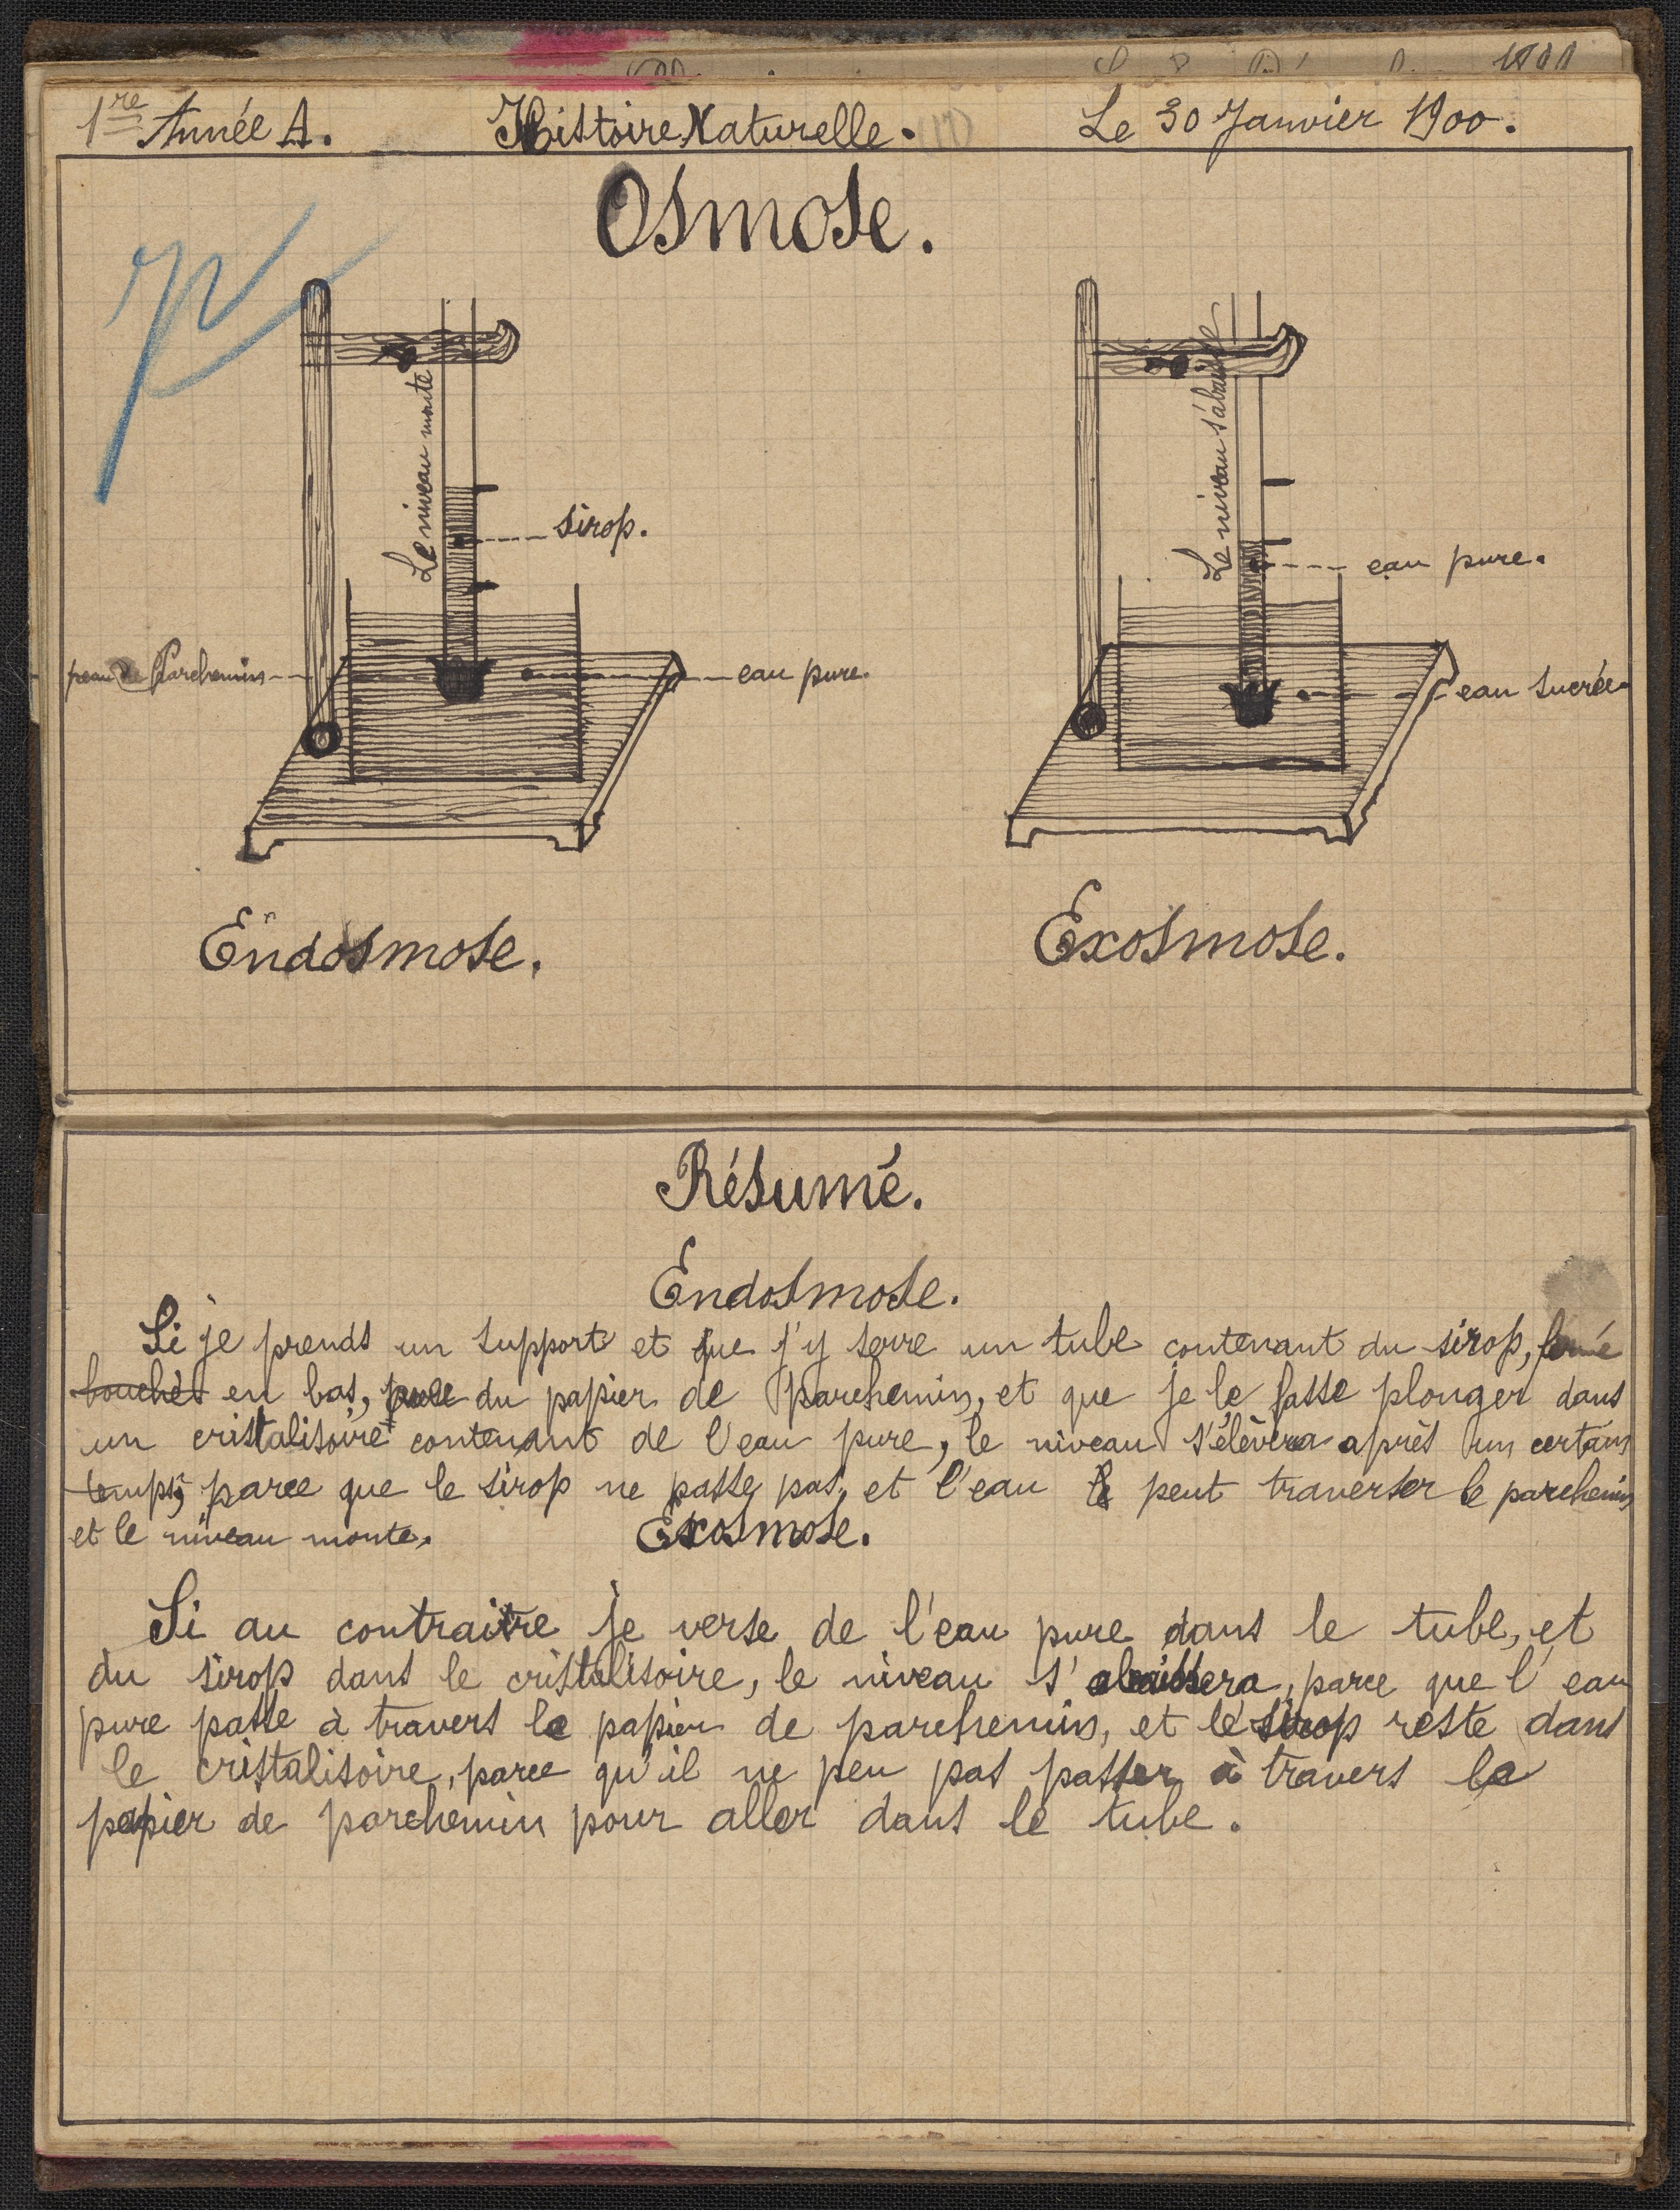 1re Année A. Histoire Naturelle. Le 30 Janvier 1900.
Osmose.
Le niveau monte
sirop.
peau de Parchemin
eau pure.
Endosmose.
Le niveau s'abaisse
eau pure.
eau sucrée.
Exosmose.
Résumé.
Endosmose.
Si je prends un support et que j'y serre un tube contenant du sirop, fermé
bouchés en bas, du papier de parchemin, et que je le fasse plonger dans
un cristalisoire contenant de l'eau pure, le niveau s'élèvera après un certains
temps, parce que le sirop ne passe pas, et l'eau peut traverser le parchemin
et le niveau monte.
Exosmose.
Si au contraitre je verse de l'eau pure dans le tube, et
du sirop dans le cristalisoire, le niveau s'abaissera, parce que l'eau
pure passe à travers le papier de parchemin, et le sirop reste dans
le cristalisoire, parce qu'il ne peu pas passer à travers le
papier de parchemin pour aller dans le tube.